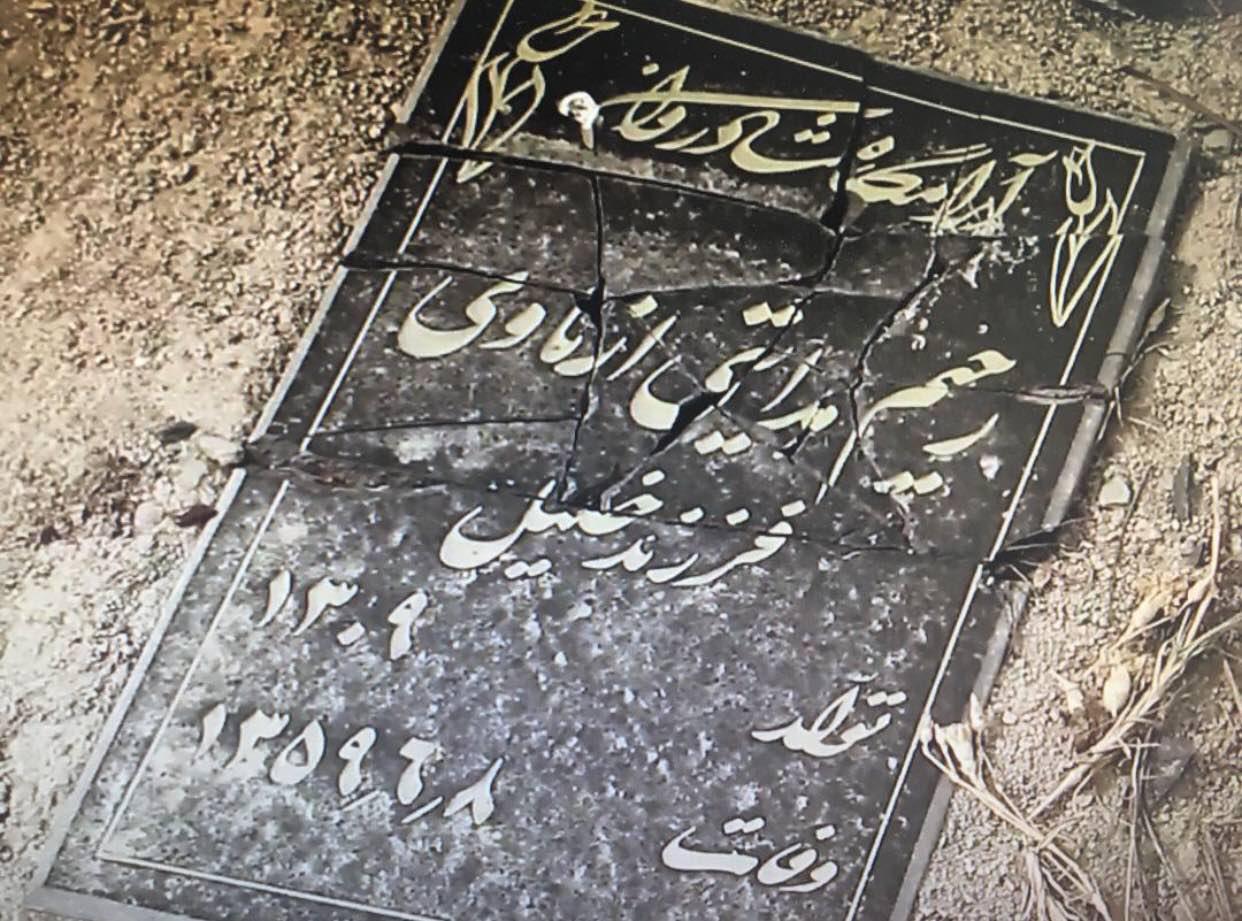 آرامگاه شادروان
رحیم هدایتی ازناوی
فرزند خلیل
تولد ۱۳۰۹
وفات ۱۳۵۹٫۶٫۸